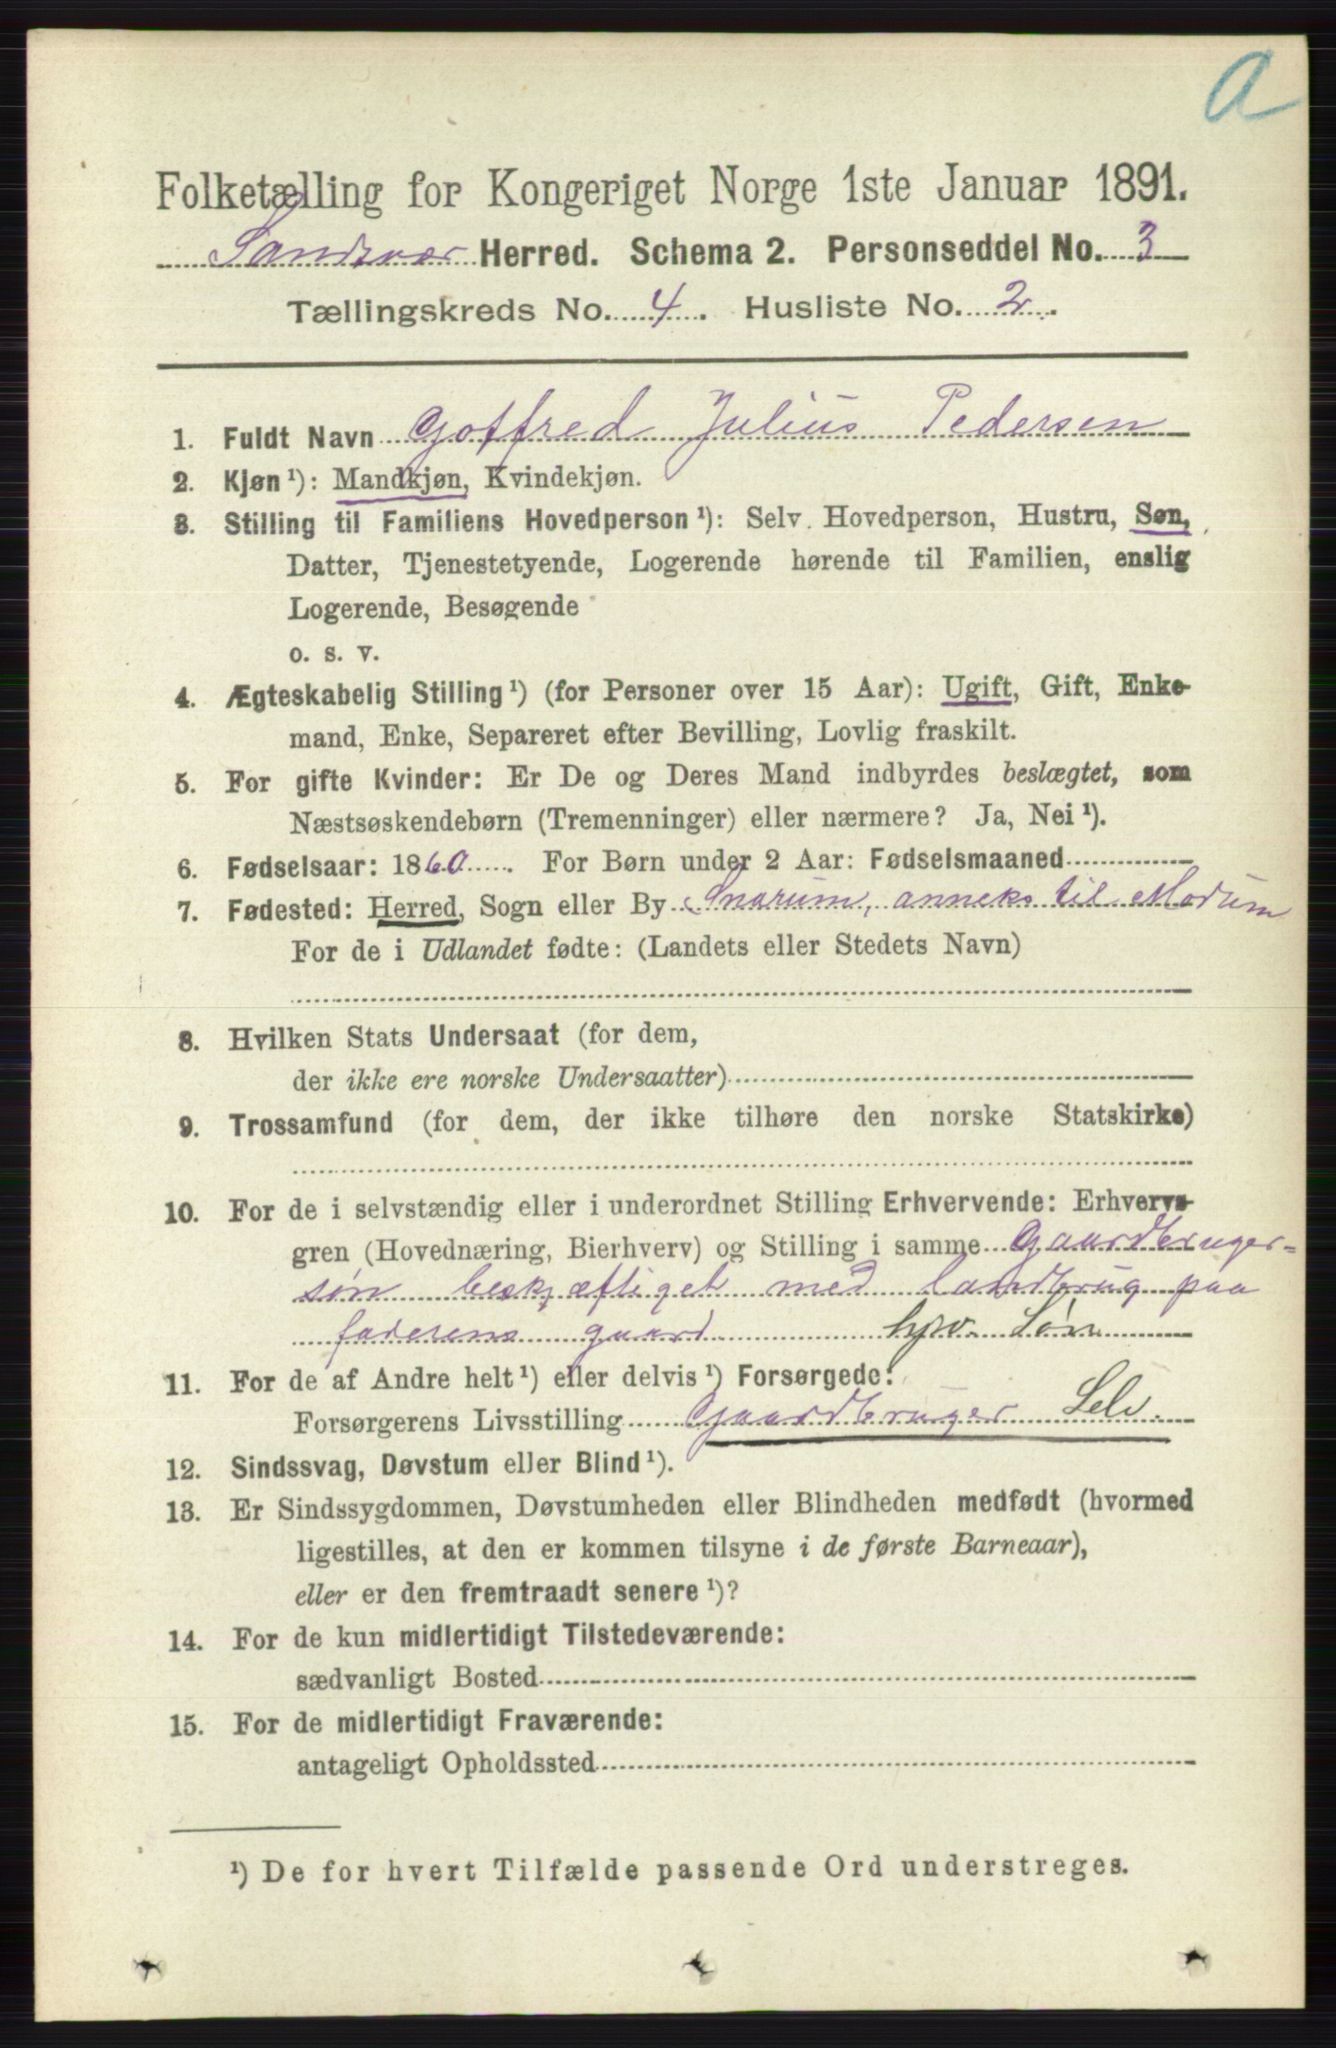 a
Folketælling for Kongeriget Norge 1ste Januar 1891.
Sandsvær Herred. Schema 2. Personseddel No. 3
Tællingskreds No. 4. Husliste No. 2.
1. Fuldt Navn Goffred Julius Pedersen
2. Kjøn¹): Mandkjøn, Kvindekjøn.
3. Stilling til Familiens Hovedperson¹): Selv Hovedperson, Hustru, Søn,
Datter, Tjenestetyende, Logerende hørende til Familien, enslig
Logerende, Besøgende
o. s. v.
4. Ægteskabelig Stilling¹) (for Personer over 15 Aar): Ugift, Gift, Enke-
mand, Enke, Separeret efter Bevilling, Lovlig fraskilt.
5. For gifte Kvinder: Er De og Deres Mand indbyrdes beslægtet, som
Næstsøskendebørn (Tremenninger) eller nærmere? Ja, Nei¹).
6. Fødselsaar: 1860. For Børn under 2 Aar: Fødselsmaaned
7. Fødested: Herred, Sogn eller By Snarum, anneks til Modum
For de i Udlandet fødte: (Landets eller Stedets Navn)
8. Hvilken Stats Undersaat (for dem,
der ikke ere norske Undersaatter)
9. Trossamfund (for dem, der ikke tilhøre den norske Statskirke)
10. For de i selvstændig eller i underordnet Stilling Erhvervende: Erhvervs-
gren (Hovednæring, Bierhverv) og Stilling i samme Gaardbruger-
søn beskjæftiget med landbrug paa
faderens gaard hjv. Søn
11. For de af Andre helt¹) eller delvis¹) Forsørgede:
Forsørgerens Livsstilling Gaardbruger Selv.
12. Sindssvag, Døvstum eller Blind¹).
13. Er Sindssygdommen, Døvstumheden eller Blindheden medfødt (hvormed
ligestilles, at den er kommen tilsyne i de første Barneaar),
eller er den fremtraadt senere¹)?
14. For de kun midlertidigt Tilstedeværende:
sædvanligt Bosted
15. For de midlertidigt Fraværende:
antageligt Opholdssted
¹) De for hvert Tilfælde passende Ord understreges.